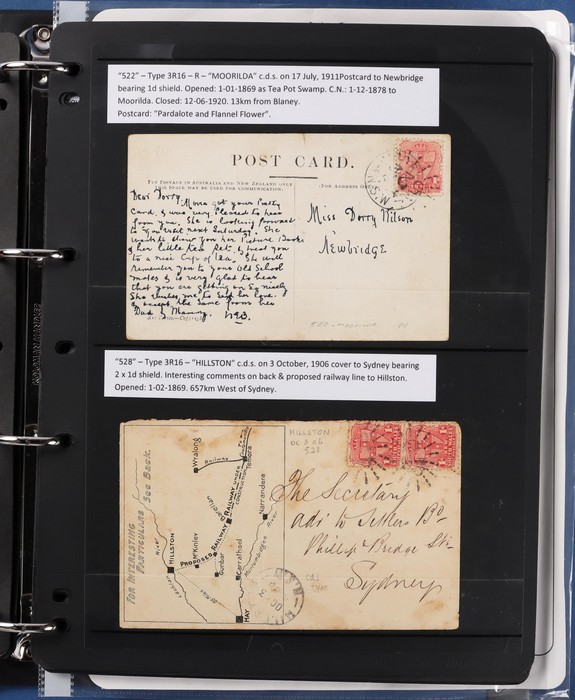 "522" – Type 3R16 – R – "MOORILDA" c.d.s. on 17 July, 1911Postcard to Newbridge
bearing 1d shield. Opened: 1-01-1869 as Tea Pot Swamp. C.N.: 1-12-1878 to
Moorilda. Closed: 12-06-1920. 13km from Blaney.
Postcard: "Pardalote and Flannel Flower".
POST CARD.
For Postage in Australia and New Zealand only
this Space may be used for Communication.
(For Address Only)
Dear Dorry,
Mona got your Pretty
Card, & was very Pleased to hear
from you. She is looking forward
to your visit next Saturday. She
wants to show you her Picture Books
& her little Tea Set, & treat you
to a nice Cup of Tea. She will
remember you to your Old School
mates & is very glad to hear
that you are getting on so nicely
She wishes me to send her love.
& accept the same from her
Dad & Mammy.
Miss Dorry Wilson
Newbridge
522 - MOORILDA
"528" – Type 3R16 – "HILLSTON" c.d.s. on 3 October, 1906 cover to Sydney bearing
2 x 1d shield. Interesting comments on back & proposed railway line to Hillston.
Opened: 1-02-1869. 657km West of Sydney.
HILLSTON
OC 3 06
528
FOR INTERESTING
PARTICULARS SEE BACK.
Wyalong
Railway
Temora
RAILWAY UNDER
CONSTRUCTION
PROPOSED RAILWAY
Lachlan River
HILLSTON
McKinley
Gunbar
Carrathool
Narrandera
Murrumbidgee River
HAY
The Secretary
Phillip & Bridge Sts
Sydney